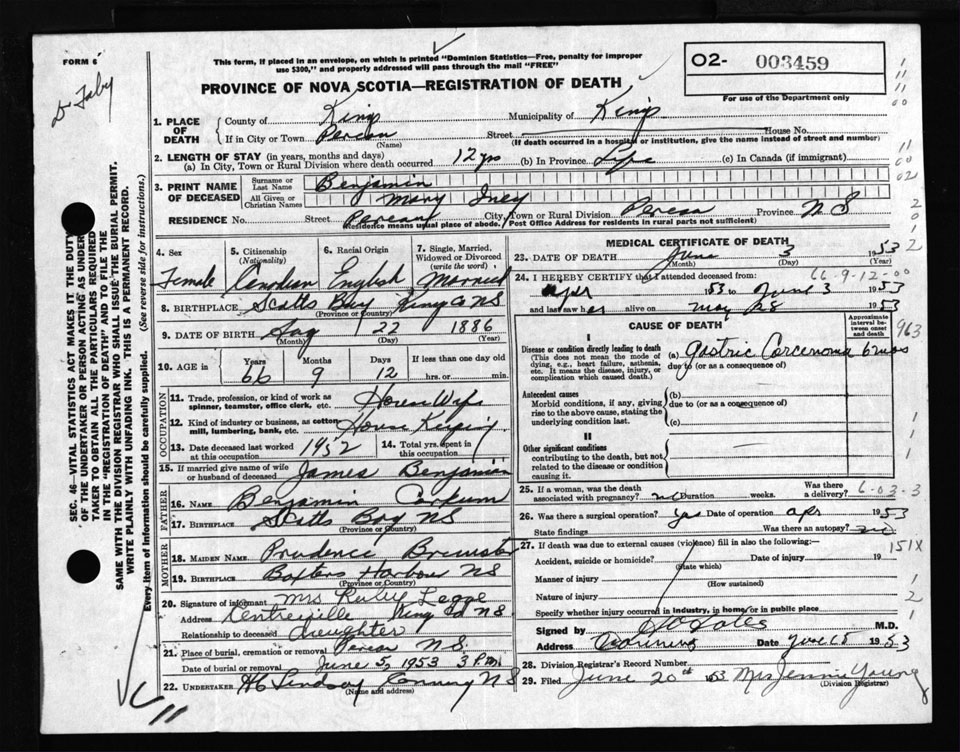 FORM 6
Dr Foley
This form, if placed in an envelope, on which is printed "Dominion Statistics—Free, penalty for improper
use $300," and properly addressed will pass through the mail "FREE"
PROVINCE OF NOVA SCOTIA—REGISTRATION OF DEATH
O2- 003459
For use of the Department only
1. PLACE OF DEATH
County of Kings Municipality of Kings
If in City or Town Pereau Street House No.
(Name) (If death occurred in a hospital or institution, give the name instead of street and number)
2. LENGTH OF STAY (in years, months and days)
(a) In City, Town or Rural Division where death occurred 12 yrs (b) In Province Life (c) In Canada (if immigrant)
3. PRINT NAME OF DECEASED
Surname or Last Name Benjamin
All Given or Christian Names Mary Inez
RESIDENCE No. Street Pereau City, Town or Rural Division Pereau Province N S
(Residence means usual place of abode. Post Office Address for residents in rural parts not sufficient)
4. Sex Female
5. Citizenship (Nationality) Canadian
6. Racial Origin English
7. Single, Married, Widowed or Divorced (write the word) Married
8. BIRTHPLACE Scotts Bay Kings Co NS
(Province or Country)
9. DATE OF BIRTH Aug 22 1886
(Month) (Day) (Year)
10. AGE in Years 66 Months 9 Days 12 If less than one day old hrs. or min.
OCCUPATION
11. Trade, profession, or kind of work as spinner, teamster, office clerk, etc. House Wife
12. Kind of industry or business, as cotton mill, lumbering, bank, etc. House Keeping
13. Date deceased last worked at this occupation 1952
14. Total yrs. spent in this occupation
15. If married give name of wife or husband of deceased James Benjamin
FATHER
16. NAME Benjamin Corkum
17. BIRTHPLACE Scotts Bay NS
(Province or Country)
MOTHER
18. MAIDEN NAME Prudence Brewster
19. BIRTHPLACE Baxters Harbour NS
(Province or Country)
20. Signature of informant Mrs Ruby Legge
Address Centreville King Co NS.
Relationship to deceased daughter
21. Place of burial, cremation or removal Pereau N S
Date of burial or removal June 5, 1953 3 P.m.
22. UNDERTAKER H C Lindsay Canning N S
(Name and address)
MEDICAL CERTIFICATE OF DEATH
23. DATE OF DEATH June 3 1953
(Month) (Day) (Year)
24. I HEREBY CERTIFY that I attended deceased from: 66-9-12-00
Apr 1953 to June 3 1953
and last saw her alive on May 28 1953
CAUSE OF DEATH
Approximate interval between onset and death
963
I
Disease or condition directly leading to death
(This does not mean the mode of dying, e.g., heart failure, asthenia, etc. It means the disease, injury, or complication which caused death.)
(a) Gastric Carcenoma 6 mos
due to (or as a consequence of)
Antecedent causes
Morbid conditions, if any, giving rise to the above cause, stating the underlying condition last.
(b)
due to (or as a consequence of)
(c)
II
Other significant conditions
contributing to the death, but not related to the disease or condition causing it.
25. If a woman, was the death associated with pregnancy? no Duration weeks. Was there a delivery? 6-03-3
26. Was there a surgical operation? yes Date of operation Apr 1953
State findings Was there an autopsy? no
27. If death was due to external causes (violence) fill in also the following: 151X
Accident, suicide or homicide? Date of injury 19
(State which)
Manner of injury
(How sustained)
Nature of injury
Specify whether injury occurred in industry, in home or in public place
Signed by M.D.
Address Canning Date 1953
28. Division Registrar's Record Number
29. Filed June 20th 1953 Mrs Jennie Young
(Division Registrar)
SEC. 46—VITAL STATISTICS ACT MAKES IT THE DUTY
OF THE UNDERTAKER OR PERSON ACTING AS UNDERTAKER TO OBTAIN ALL THE PARTICULARS REQUIRED
IN THE "REGISTRATION OF DEATH" AND TO FILE THE
SAME WITH THE DIVISION REGISTRAR WHO SHALL ISSUE THE BURIAL PERMIT.
WRITE PLAINLY WITH UNFADING INK. THIS IS A PERMANENT RECORD.
Every item of information should be carefully supplied. (See reverse side for instructions.)